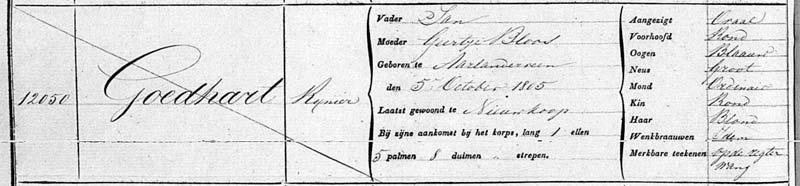 12050
Goedhart
Rynier
Vader Jan
Moeder Geertje Bloos
Geboren te Aarlanderveen
den 5n October 1805
Laatst gewoond te Nieuwkoop
Bij zijne aankomst bij het korps, lang 1 ellen
5 palmen 8 duimen „ strepen.
Aangezigt Ovaal
Voorhoofd Rond
Oogen Blaauw
Neus Groot
Mond Ordinair
Kin Rond
Haar Blond
Wenkbraauwen Idem
Merkbare teekenen op de regter
wang